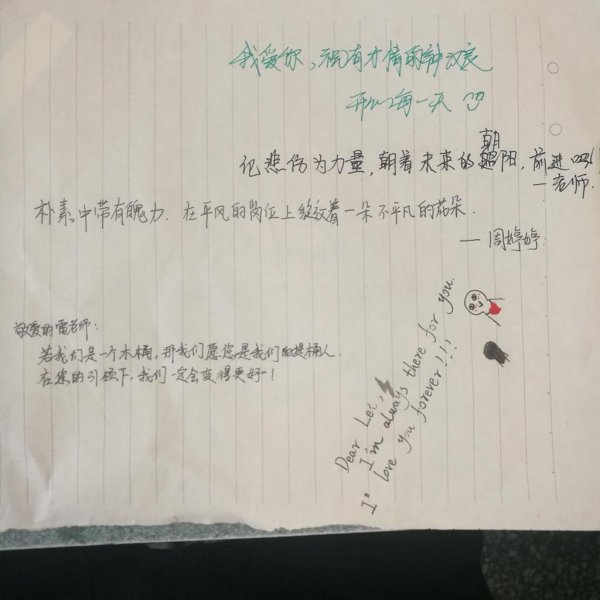 我爱你，祝有才情的钟汉良
开心每一天
化悲伤为力量，朝着未来的朝阳，前进吧！
—老师.
朴素中带有魄力. 在平凡的岗位上绽放着一朵不平凡的花朵.
— 周婷婷.
敬爱的雷老师：
若我们是一个木桶，那我们愿您是我们的提桶人.
在您的引领下，我们一定会变得更好！
Dear Lei,
I'm always there for you.
I love you forever!!!